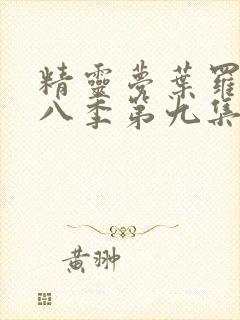 精靈夢葉羅
八季第九集
黃翀